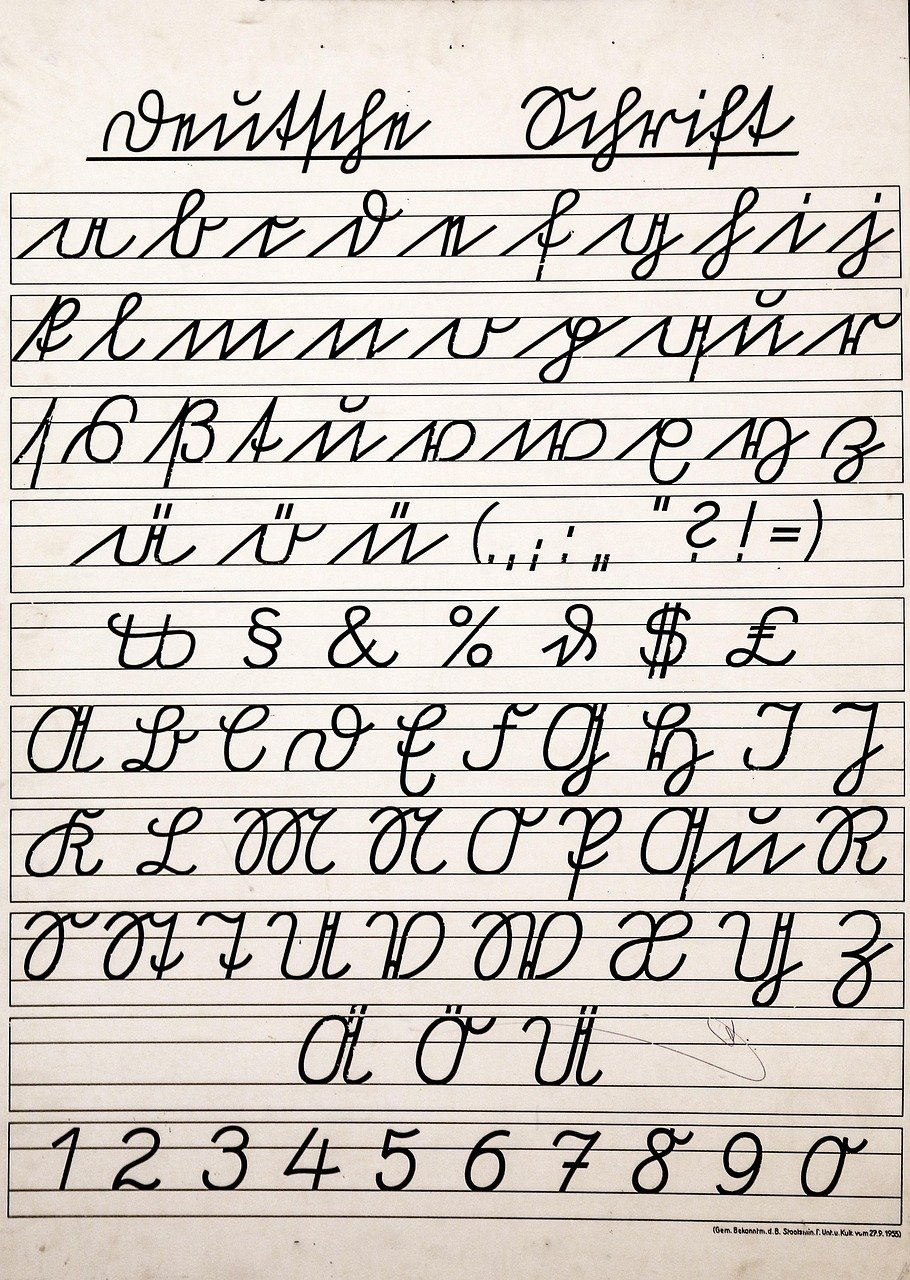 Deutsche Schrift
a b c d e f g h i j
k l m n o p qu r
ſ s ß t u v w x y z
ä ö ü ( . , ; : „ " ? ! = )
§ & % $ £
A B C D E F G H I J
K L M N O P Qu R
S St T U V W X Y Z
Ä Ö Ü
1 2 3 4 5 6 7 8 9 0
(Gem. Bekanntm. d. B. Staatsmin. f. Unt. u. Kult. vom 27.9.1955)